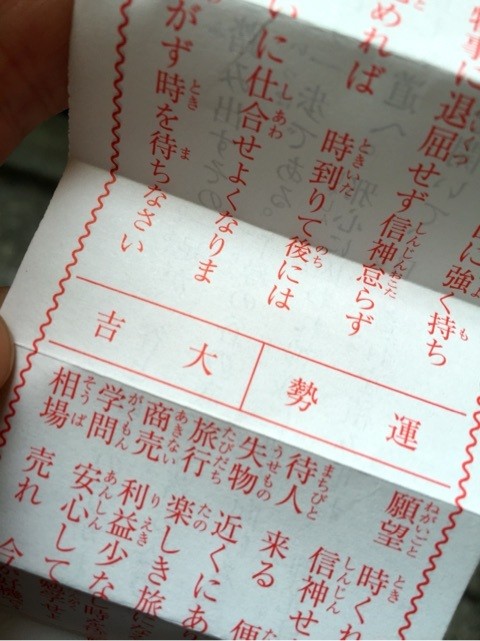 に強く持ち
物事に退屈せず信神怠らず
めれば 時到りて後には
いに仕合せよくなりま
がず時を待ちなさい
運勢
大吉
願望 時くれ
信神せ
待人 来る 便
失物 近くにあ
旅行 楽しき旅に
商売 利益少な
学問 安心して
相場 売れ 今